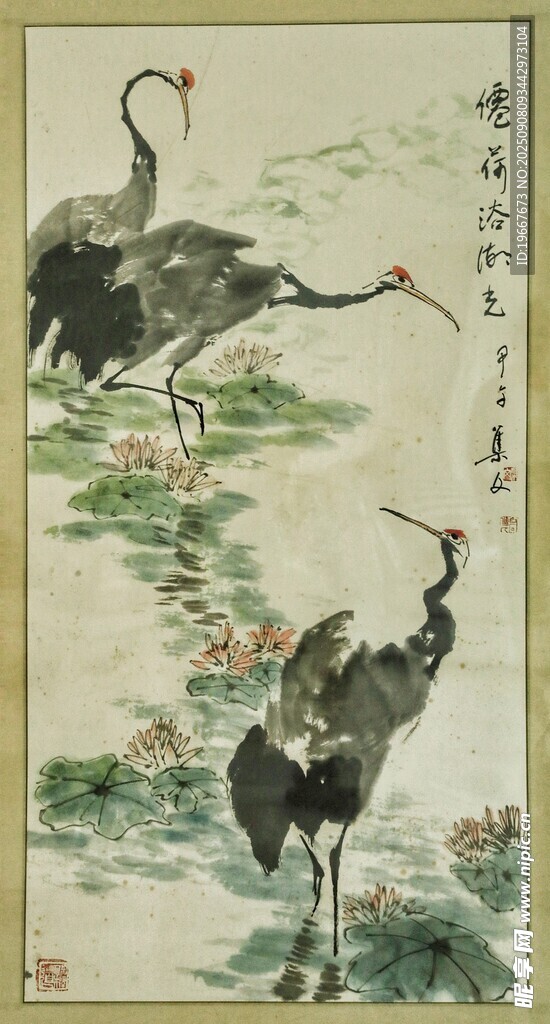 僊荷浴湖光
甲午
集文
ID:19667673 NO:20250908093442973104
昵享网 www.nipic.cn